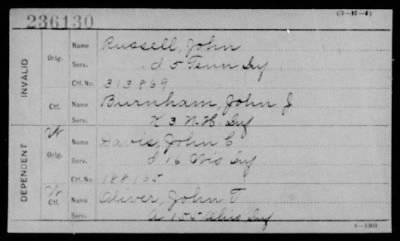 236130
(3-H-4)
INVALID
Orig.
Name Russell, John
Serv. I 5 Tenn Inf
Ctf. No. 313869
Ctf.
Name Burnham, John J
Serv. K 3 N.H. Inf
DEPENDENT
W
Orig.
Name Davis, John C
Serv. I 16 Wis Inf
Ctf. No. 188165
W
Ctf.
Name Oliver, John T
Serv. A 105 Ohio Inf